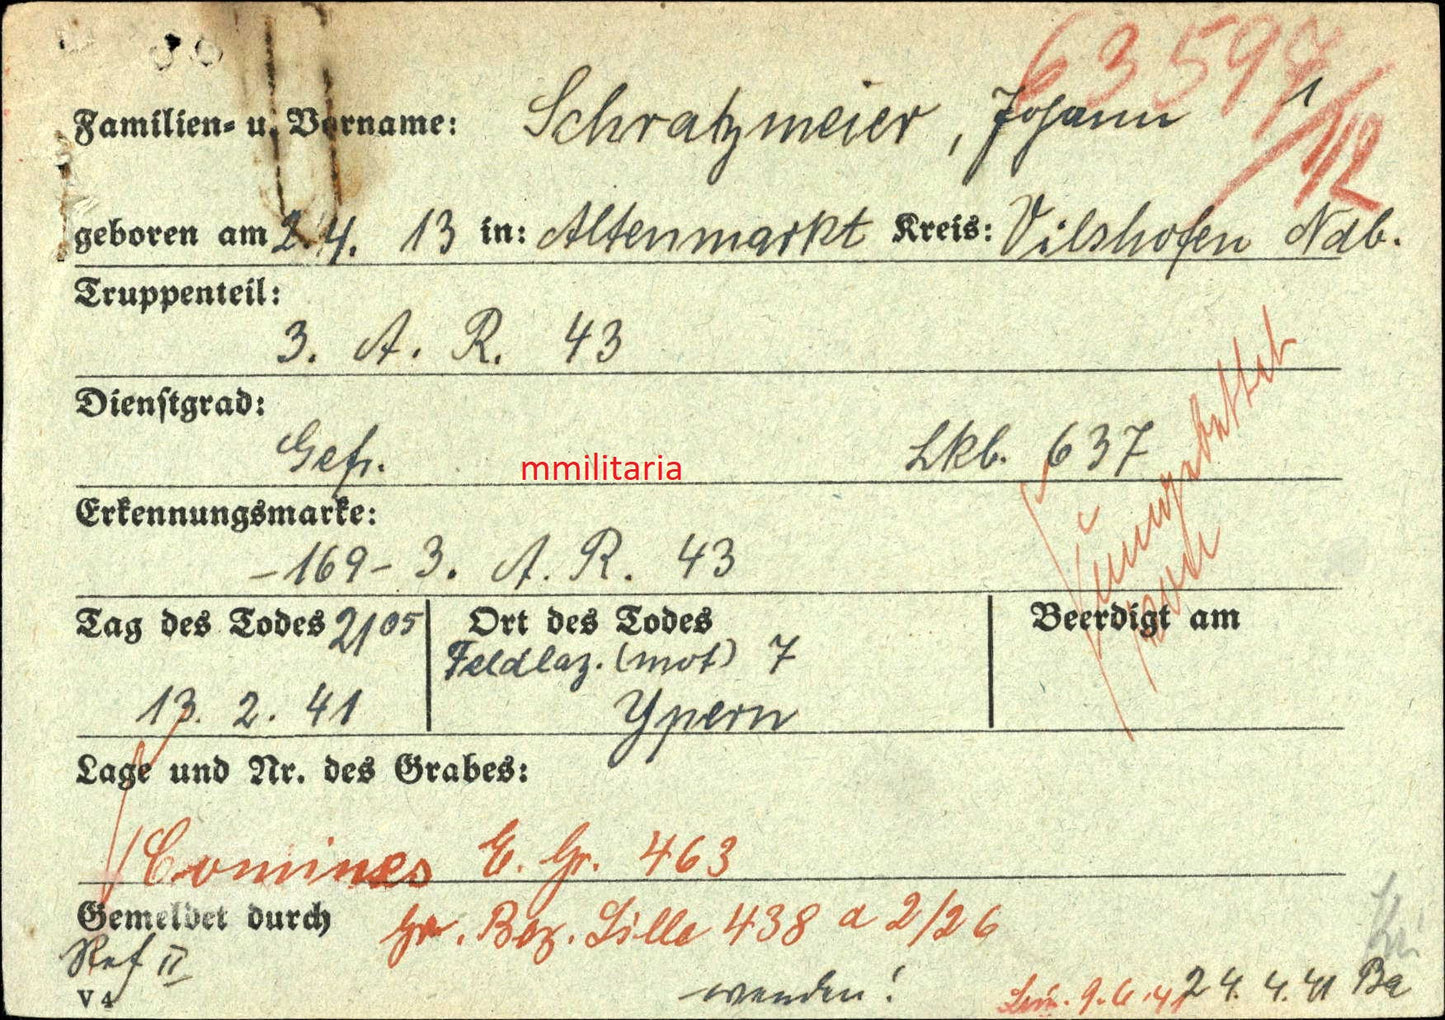 63597/112
Familien- u. Vorname: Schratzmeier, Johann 1
geboren am 2.4. 13 in: Altenmarkt Kreis: Vilshofen Ndb.
Truppenteil:
3. A. R. 43
Dienstgrad:
Gefr. Lkb. 637
mmilitaria
Erkennungsmarke:
-169- 3. A. R. 43
Tag des Todes 2105 Ort des Todes Beerdigt am
Feldlaz. (mot) 7
13. 2. 41 Ypern
Lage und Nr. des Grabes:
Comines E. Gr. 463
Gemeldet durch Gr. Bez. Lille 438 a 2/26
Ref II
wenden!
9.6.41 24.4.41 Ba
V 4